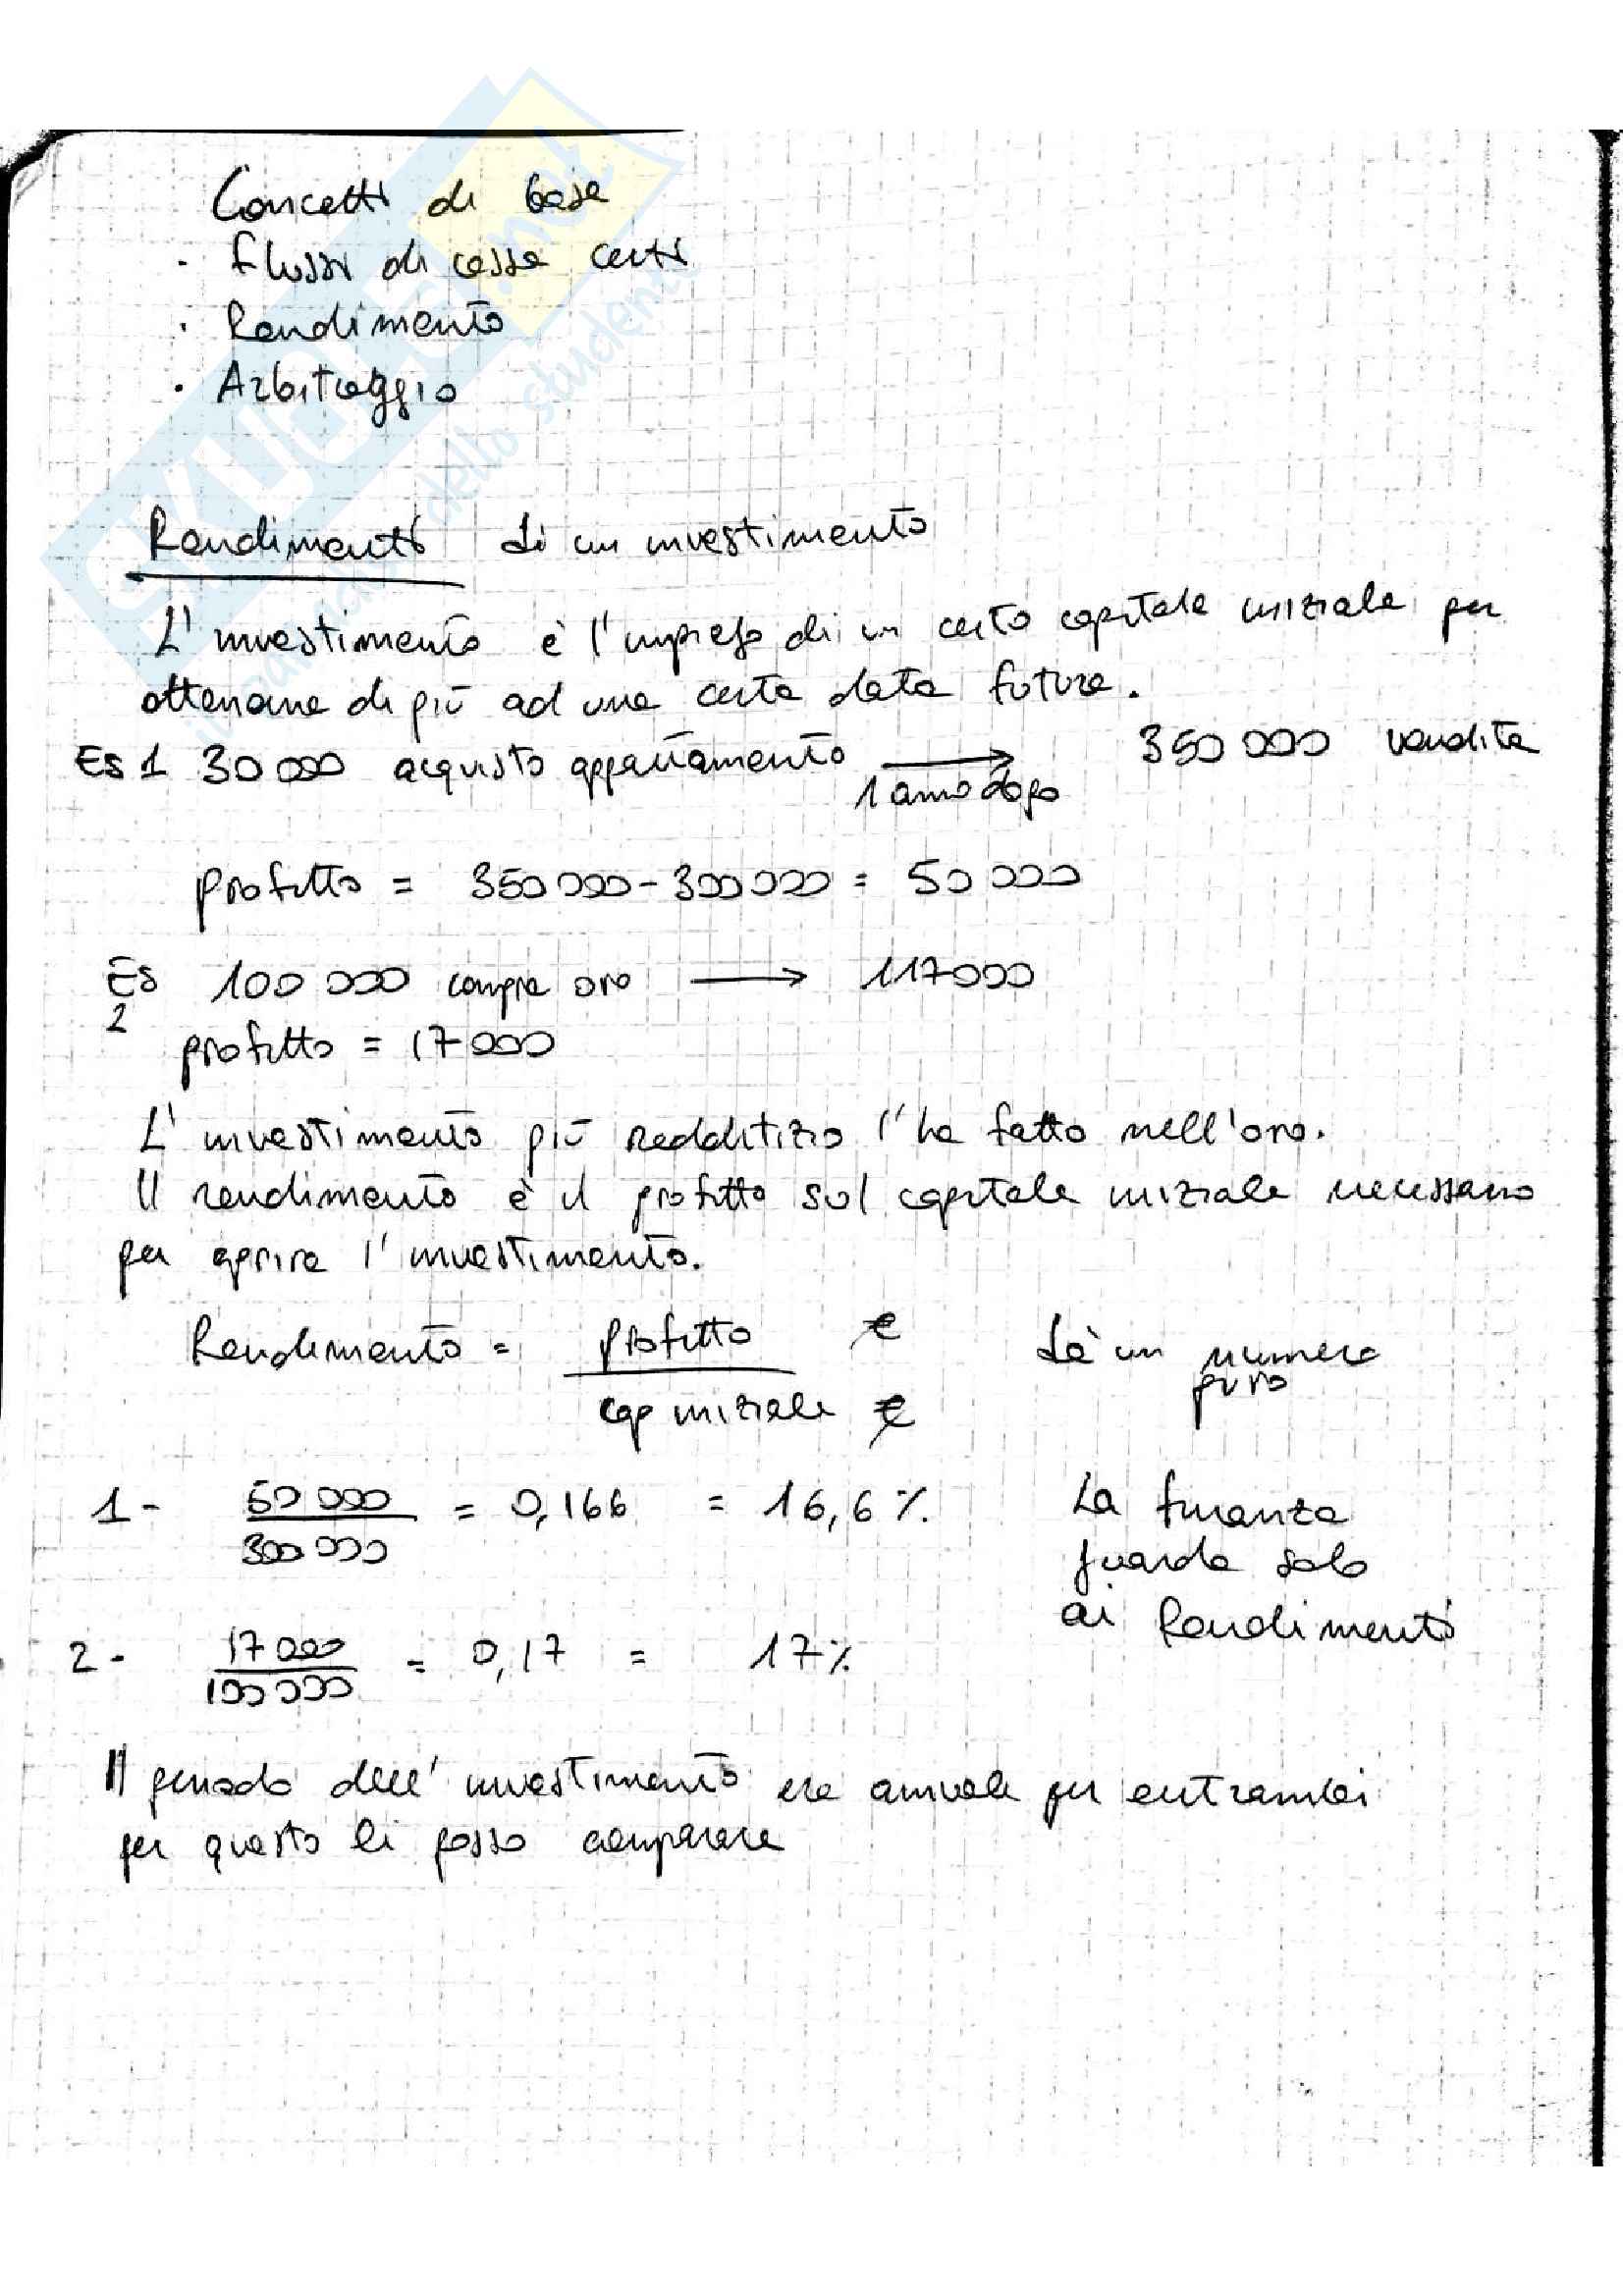 Concetti di base
· Flussi di cassa certi
· Rendimento
· Arbitraggio
Rendimenti di un investimento
L'investimento è l'impiego di un certo capitale iniziale per
ottenerne di più ad una certa data futura.
Es 1 30 000 acquisto appartamento → 350 000 vendita
1 anno dopo
profitto = 350 000 - 300 000 = 50 000
Es 2 100 000 compra oro → 117 000
profitto = 17 000
L'investimento più redditizio l'ha fatto nell'oro.
Il rendimento è il profitto sul capitale iniziale necessario
per aprire l'investimento.
Rendimento = profitto € / cap iniziale € è un numero puro
1 - 50 000 / 300 000 = 0,166 = 16,6 %
La finanza
guarda solo
ai Rendimenti
2 - 17 000 / 100 000 = 0,17 = 17 %
Il periodo dell'investimento era annuale per entrambi
per questo li posso comparare
SKUOLA.net
il paradiso dello studente